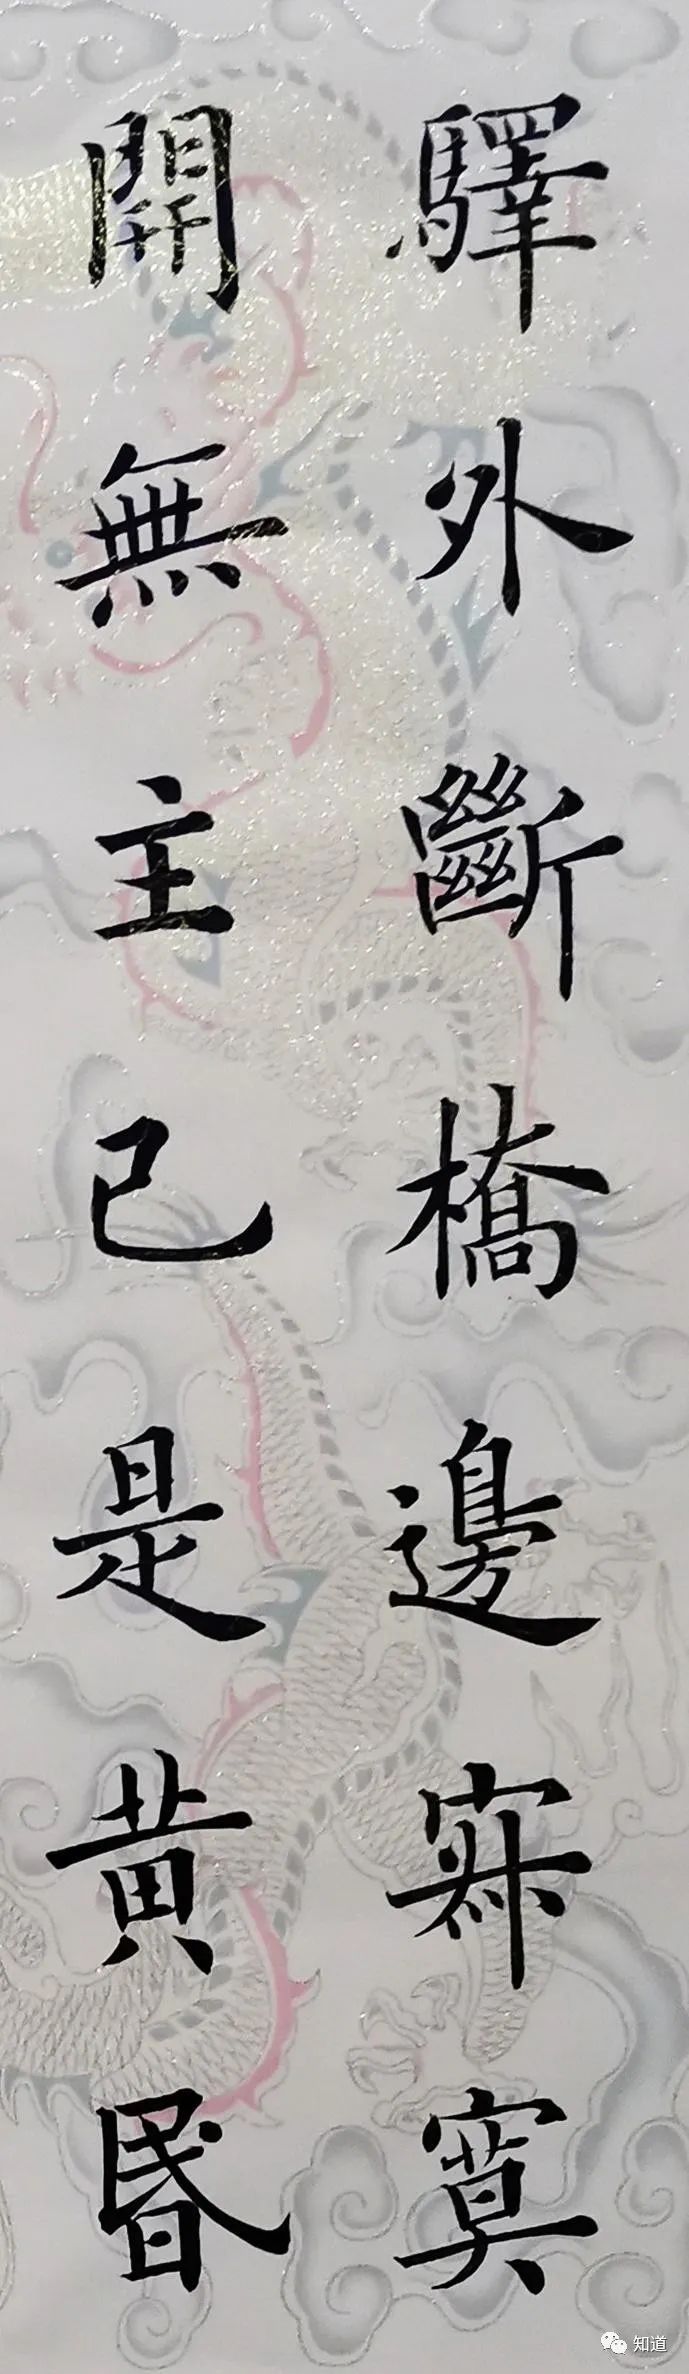 驛外斷橋邊寂寞
開無主已是黄昬
知道